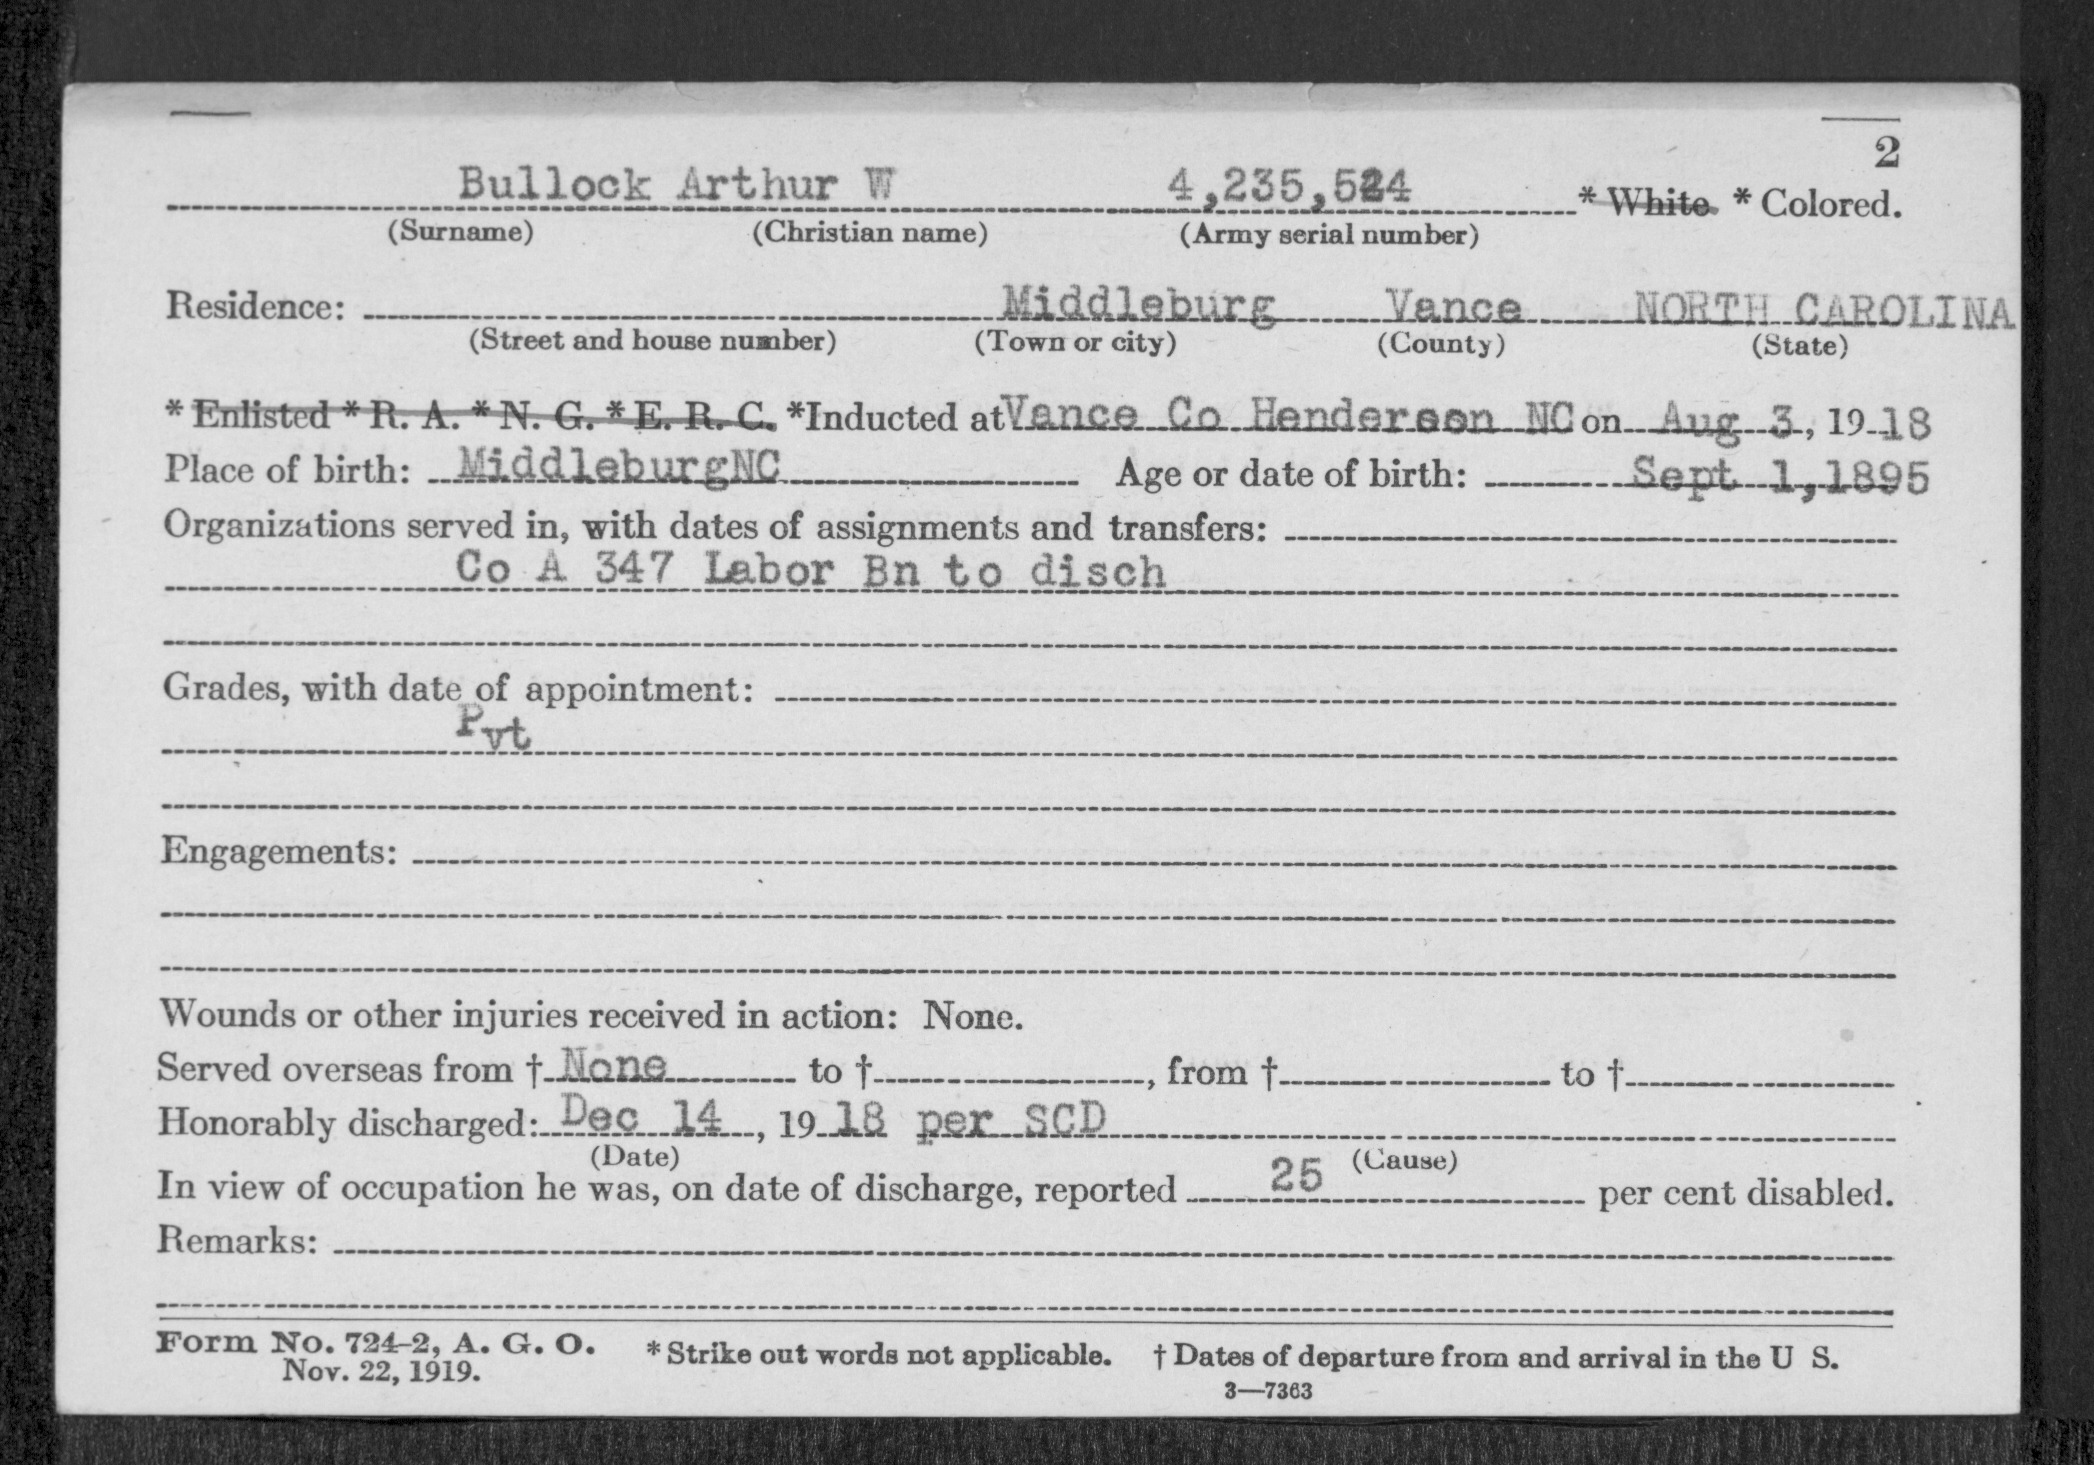 2
Bullock Arthur W 4,235,524 * White * Colored.
(Surname) (Christian name) (Army serial number)
Residence: Middleburg Vance NORTH CAROLINA
(Street and house number) (Town or city) (County) (State)
* Enlisted * R. A. * N. G. * E. R. C. *Inducted at Vance Co Henderson NC on Aug 3, 19 18
Place of birth: MiddleburgNC Age or date of birth: Sept 1,1895
Organizations served in, with dates of assignments and transfers:
Co A 347 Labor Bn to disch
Grades, with date of appointment:
Pvt
Engagements:
Wounds or other injuries received in action: None.
Served overseas from † None to †, from † to †
Honorably discharged: Dec 14, 19 18 per SCD
(Date) (Cause)
In view of occupation he was, on date of discharge, reported 25 per cent disabled.
Remarks:
Form No. 724-2, A. G. O. * Strike out words not applicable. † Dates of departure from and arrival in the U S.
Nov. 22, 1919.
3—7363